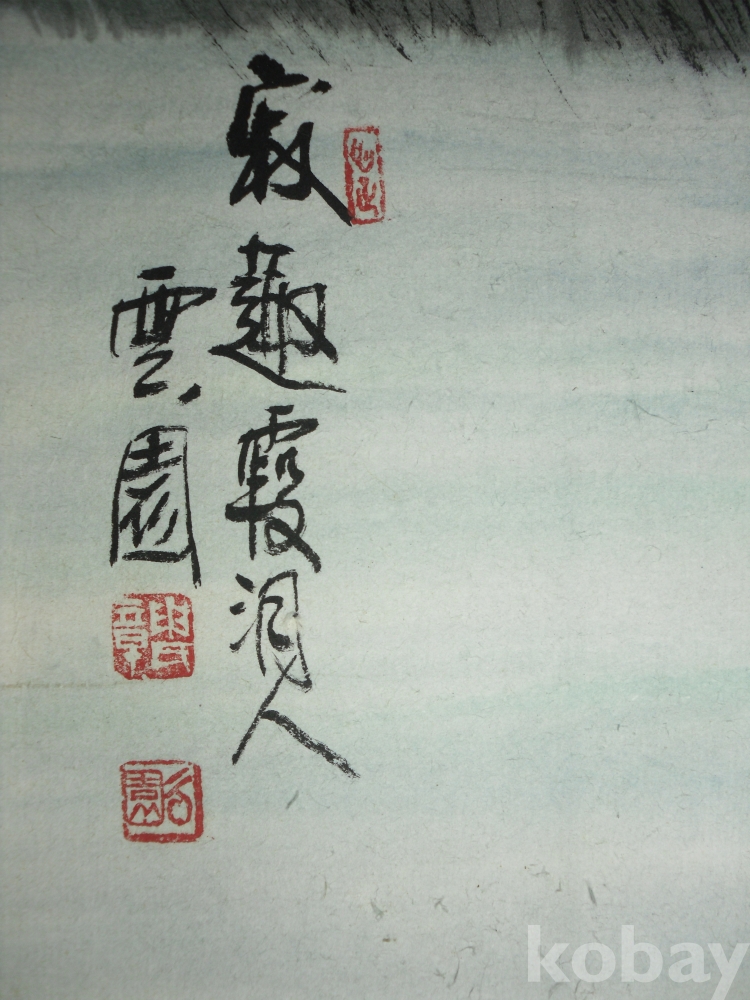 寂趣霞洞人
雲園
kobay